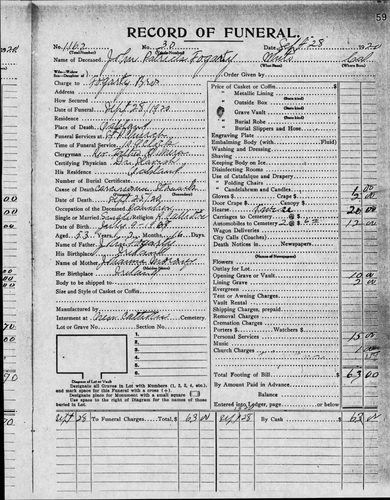 59
RECORD OF FUNERAL.
No. 1162 No. 30 Date Sept 28 1920
(Total Number) (Yearly Number)
Name of Deceased John Patrick Fogarty White Cal
(What Race) (Where Born)
Charge to Fogarty Bros Order Given by
Address
How Secured
Date of Funeral Sept 28, 1920
Residence
Place of Death Oakland
Funeral Services at
Time of Funeral Service
Clergyman Rev.
Certifying Physician Dr.
His Residence Oakland
Number of Burial Certificate
Cause of Death Carcinoma Stomach
Date of Death Sept 25, 20
Occupation of Deceased
Single or Married Single Religion
Date of Birth July 9
Aged 53 Years, 2 Mos. 16 Days
Name of Father John Fogarty
His Birthplace Ireland
Name of Mother
Her Birthplace Ireland
Body to be shipped to
Size and Style of Casket or Coffin
Manufactured by
Interment at New Catholic Cemetery
Lot or Grave No. Section No.
Diagram of Lot or Vault
Designate all Graves in Lot with Numbers (1, 2, 3, 4, etc.), and mark space for this Funeral with a cross (+).
Designate place for Monument with a small square
Use space to right of Diagram for the names of those buried in Lot.
Price of Casket or Coffin
" Metallic Lining
" Outside Box
" Grave Vault
" Burial Robe
" Burial Slippers and Hose
Engraving Plate
Embalming Body (with Fluid)
Washing and Dressing
Shaving
Keeping Body on Ice
Disinfecting Rooms
Use of Catafalque and Drapery
" Folding Chairs
" Candelabrum and Candles
Gloves $ Crape $
Hearse 20 00
Carriages to Cemetery @ $
Automobiles to Cemetery 2 @ $ 6 12 00
Wagon Deliveries
City Calls (Coaches)
Death Notices in Newspapers
Flowers
Outlay for Lot
Opening Grave or Vault 10 00
Lining Grave or Vault
Evergreen
Tent or Awning
Vault Rental
Shipping Charges, prepaid
Removal Charges
Cremation Charges
Porters $ Watchers $
Personal Services 15 00
Music
Church Charges
Total Footing of Bill $ 63 00
By Amount Paid in Advance
Balance
Entered into Ledger, page or below.
Sept 28 To Funeral Charges, Total $ 63 00 Sept 28 By Cash $ 63 00